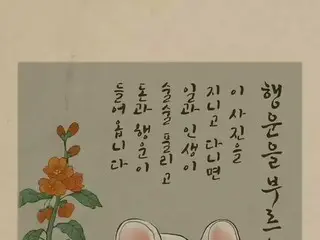 행운을 부르
이 사진을
지니고 다니면
일과 인생이
술술 풀리고
돈과 행운이
들여옵니다